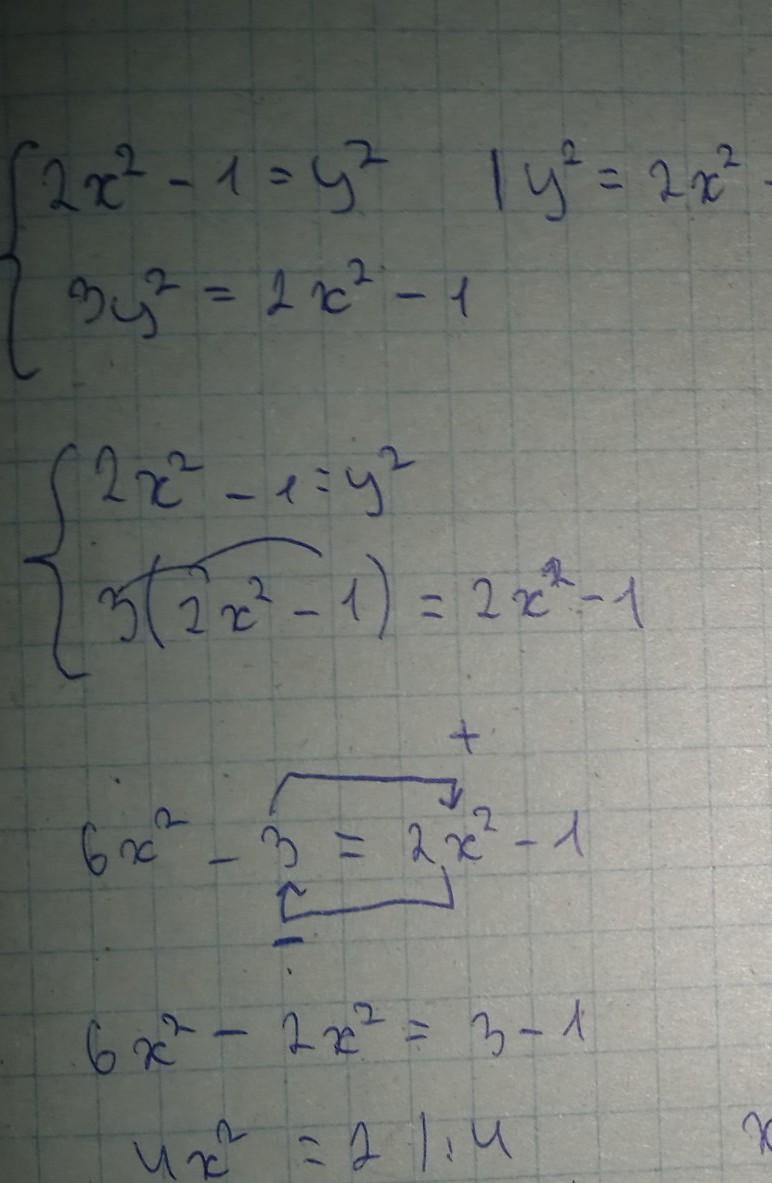 2x² - 1 = y² | y² = 2x² -
3y² = 2x² - 1
2x² - 1 = y²
3(2x² - 1) = 2x² - 1
+
6x² - 3 = 2x² - 1
-
6x² - 2x² = 3 - 1
4x² = 2 |:4 x